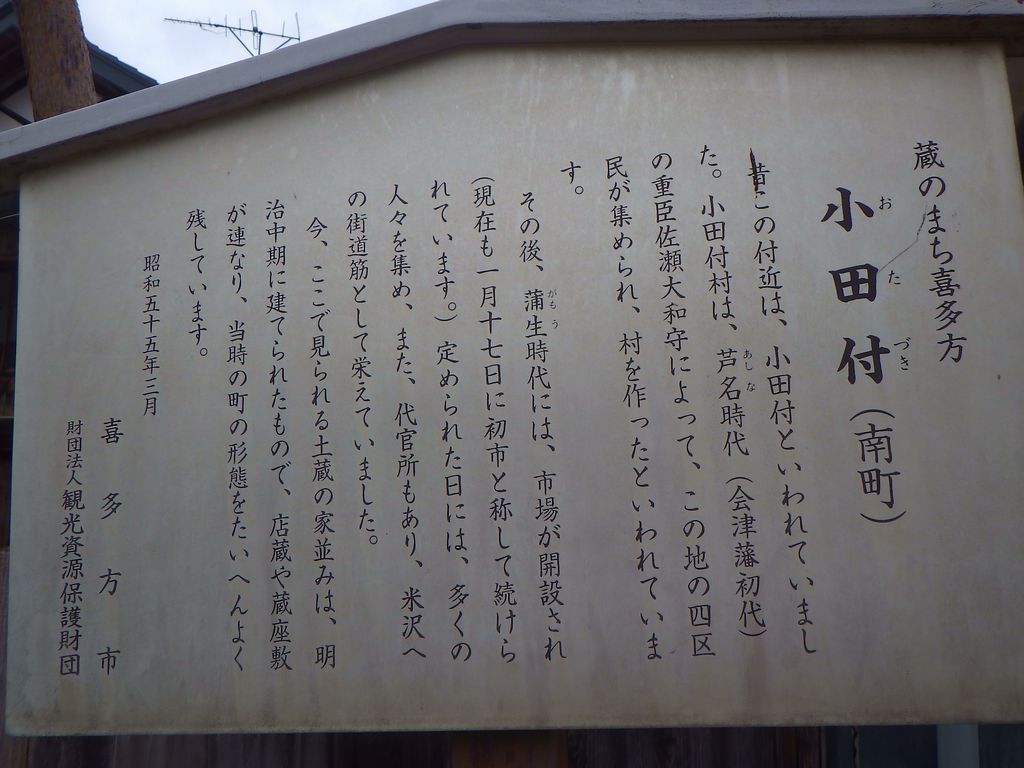 蔵のまち喜多方
小田付（南町）
おたづき
昔この付近は、小田付といわれていまし
た。小田付村は、芦名時代（会津藩初代）
あしな
の重臣佐瀬大和守によって、この地の四区
民が集められ、村を作ったといわれていま
す。
その後、蒲生時代には、市場が開設され
がもう
（現在も一月十七日に初市と称して続けら
れています。）定められた日には、多くの
人々を集め、また、代官所もあり、米沢へ
の街道筋として栄えていました。
今、ここで見られる土蔵の家並みは、明
治中期に建てられたもので、店蔵や蔵座敷
が連なり、当時の町の形態をたいへんよく
残しています。
昭和五十五年三月
喜多方市
財団法人観光資源保護財団